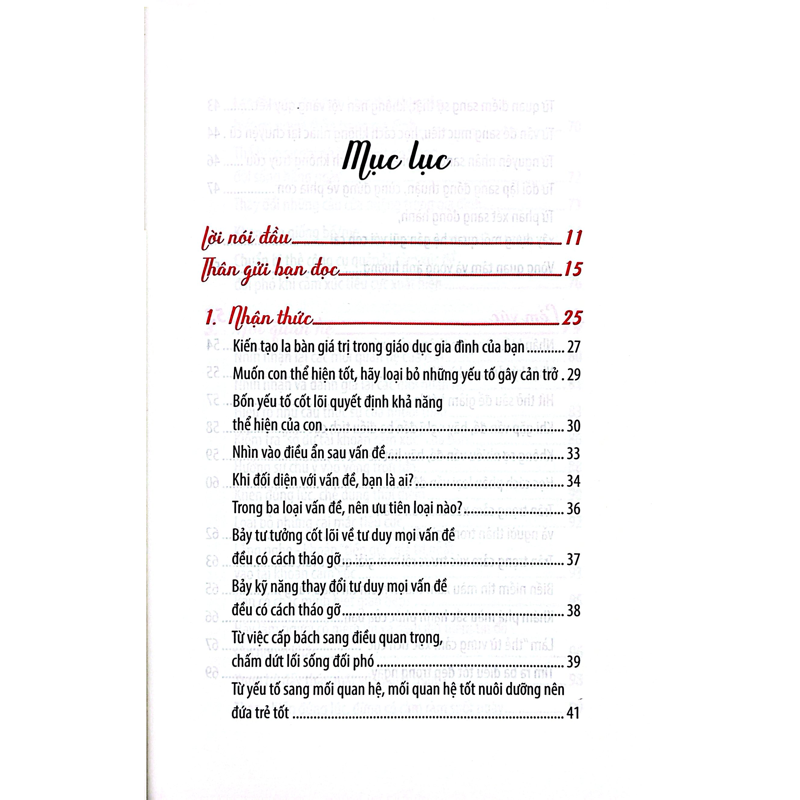 Mục lục
Lời nói đầu 11
Thân gửi bạn đọc 15
1. Nhận thức 25
Kiến tạo la bàn giá trị trong giáo dục gia đình của bạn ........... 27
Muốn con thể hiện tốt, hãy loại bỏ những yếu tố gây cản trở . 29
Bốn yếu tố cốt lõi quyết định khả năng
thể hiện của con ........... 30
Nhìn vào điều ẩn sau vấn đề ........... 33
Khi đối diện với vấn đề, bạn là ai? ........... 34
Trong ba loại vấn đề, nên ưu tiên loại nào? ........... 36
Bảy tư tưởng cốt lõi về tư duy mọi vấn đề
đều có cách tháo gỡ ........... 37
Bảy kỹ năng thay đổi tư duy mọi vấn đề
đều có cách tháo gỡ ........... 38
Từ việc cấp bách sang điều quan trọng,
chấm dứt lối sống đối phó ........... 39
Từ yếu tố sang mối quan hệ, mối quan hệ tốt nuôi dưỡng nên
đứa trẻ tốt ........... 41